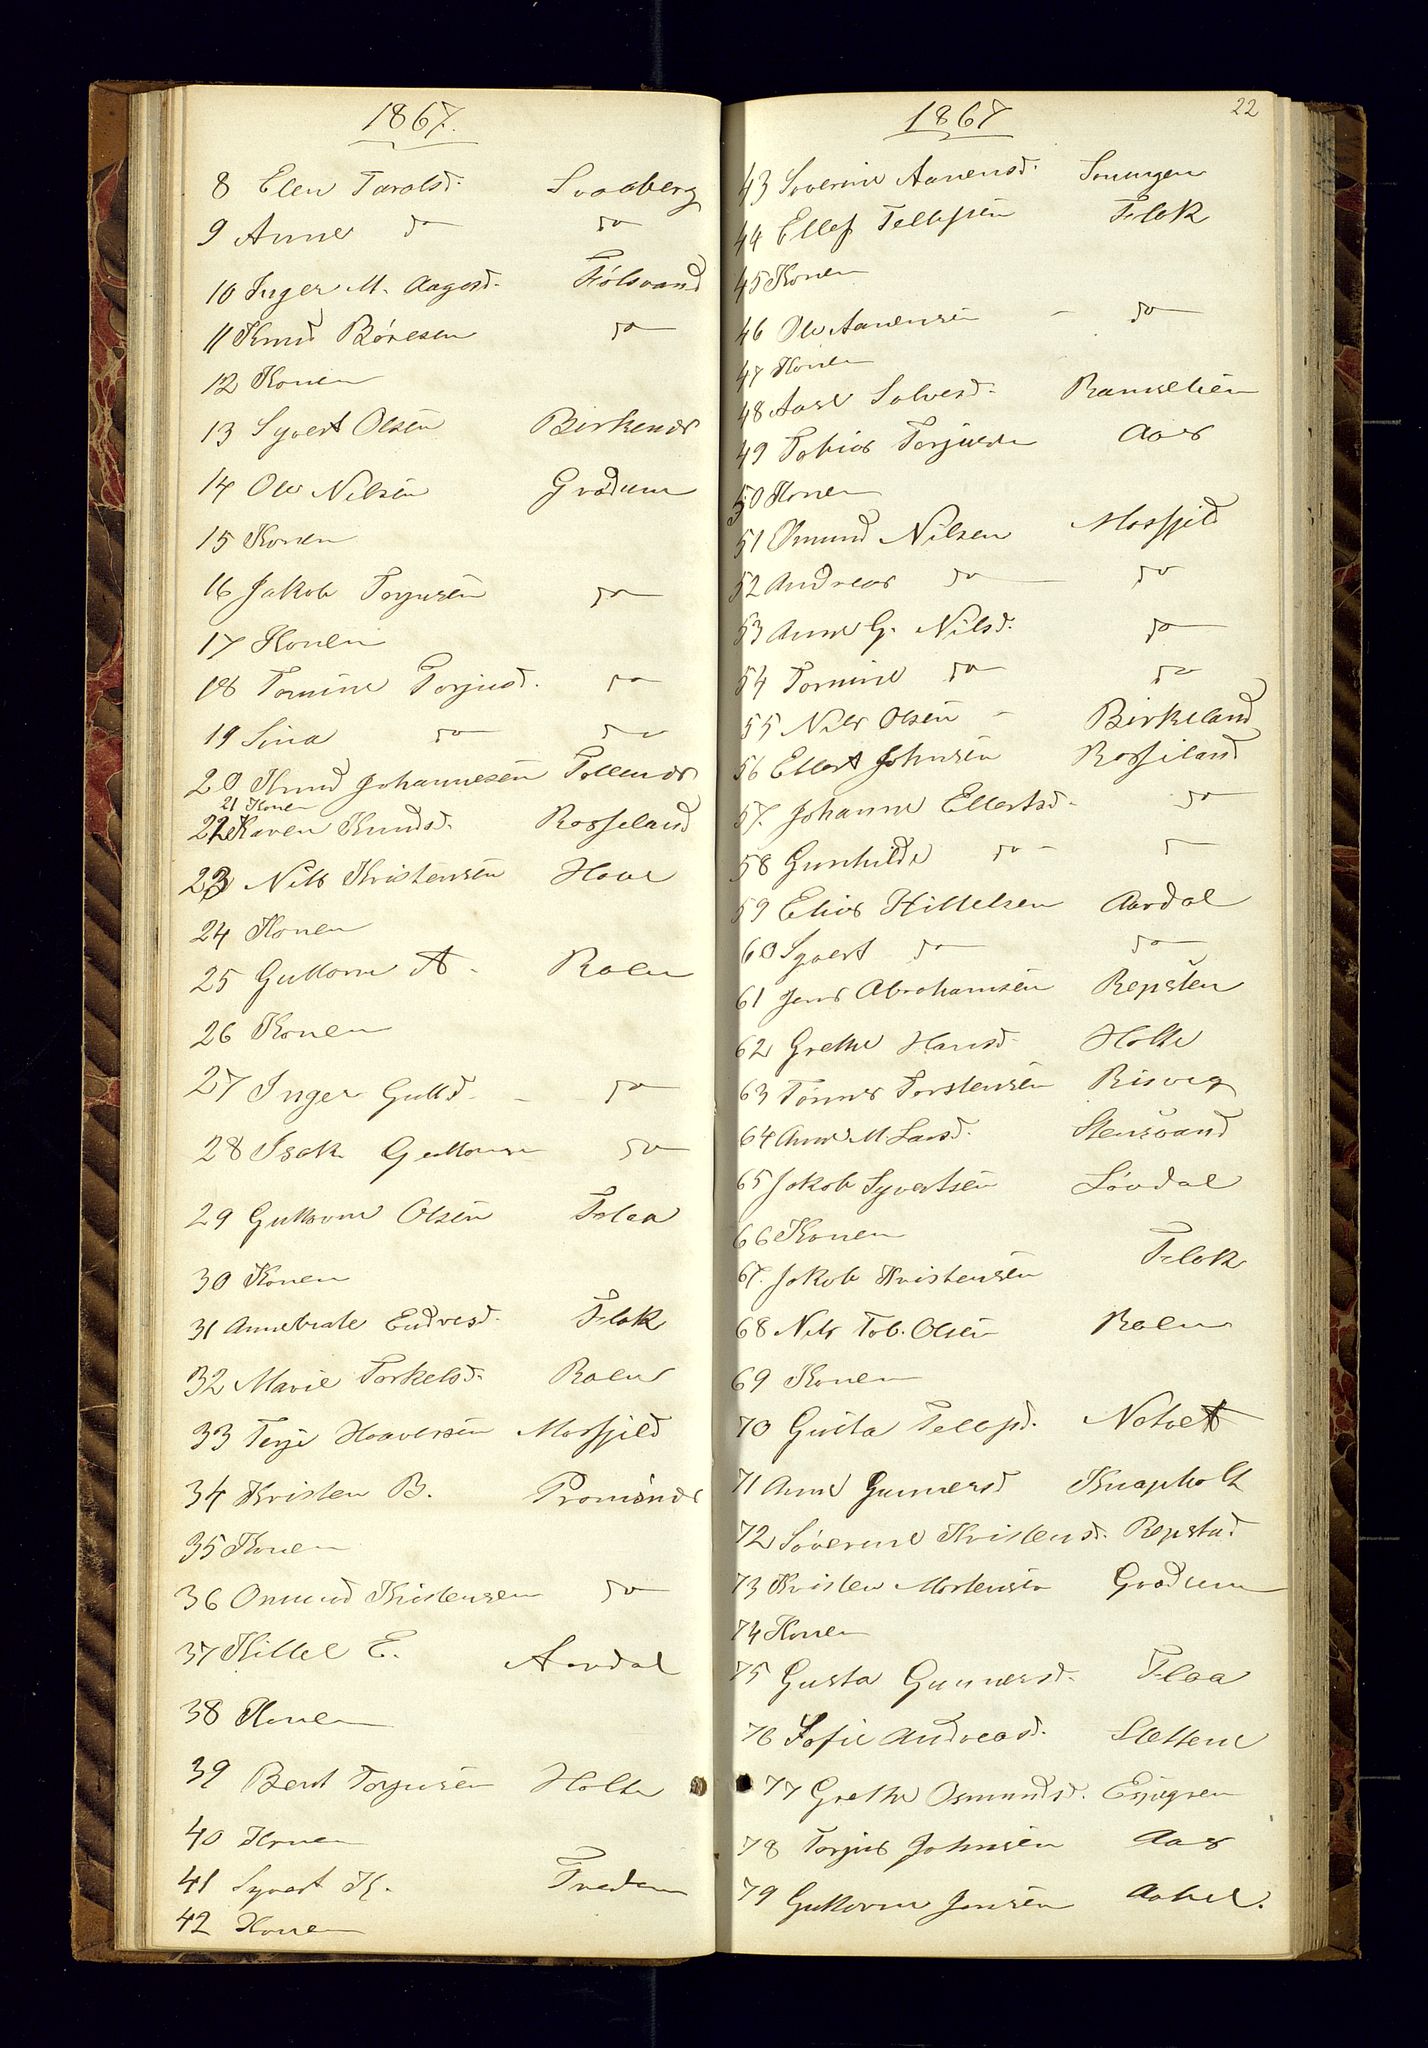 1867.
8 Elen Taralsd. Svaaberg
9 Anne do do
10 Inger M. Aagesd. Følsvand
11 Knud Børesen do
12 Konen
13 Syvert Olsen Birkenes
14 Ole Nilsen Grødum
15 Konen
16 Jakob Torjusen do
17 Konen
18 Tomine Torjusd. do
19 Sina do do
20 Knud Johannesen Tollenes
21 Konen
22 Karen Knudsd. Rosseland
23 Nils Kristensen Haae
24 Konen
25 Guttorm A. Raen
26 Konen
27 Inger Guttd. - do
28 Isak Guttormsen do
29 Guttorm Olsen Flaa
30 Konen
31 Annebeate Endresd. Flak
32 Marie Torkelsd. Raen
33 Terje Haaversen Mosfjeld
34 Kristen B. Tromsnes
35 Konen
36 Omund Kristensen do
37 Kittel E. Aardal
38 Konen
39 Bent Torjusen Holte
40 Konen
41 Syvert K. Tveden
42 Konen
1867
22
43 Soverine Aanensd.
44 Ellef Tellefsen Flak
45 Konen
46 Ole Aanensen - do
47 Konen
48 Aase Salvesd. Ramselien
49 Tobias Torjusen Aas
50 Konen
51 Omund Nilsen Mosfjeld
52 Andreas do do
53 Anne G. Nilsd. do
54 Tomine do do
55 Nils Olsen - Birkeland
56 Ellert Johnsen Rosseland
57. Johanne Ellertsd. do
58 Gunhilde do
59 Elias Kittelsen Aardal
60 Syvert do do
61 Jens Abrahamsen Repsten
62 Grethe Hansd. Holte
63 Tønnes Torstensen Risveg
64 Anne M. Larsd. Stensvand
65 Jakob Syvertsen Løvdal
66 Konen
67. Jakob Kristensen Flak
68 Nils Tob. Olsen Raen
69 Konen
70 Gusta Tellefsd. Natvet
71 Anne Gunnersd Knapholt
72 Søverine Kristensd. Repstad
73 Kristen Mortensen Grødum
74 Konen
75 Gusta Gunnersd. Flaa
76 Sofie Andreasd. Slettene
77 Grethe Osmundsd. Espegren
78 Torjus Johnsen Aas
79 Guttorm Jensen